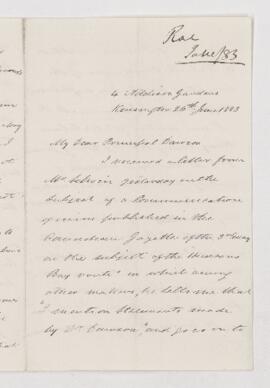 Rae
June/83
4 Addison Gardens
Kensington 26th June 1883
My Dear Principal Dawson
I received a letter from
Mr Selwin yesterday on the
subject of a Communication
of mine published in the
Canadian Gazette of the 3rd May
on the subject of the "Hudsons
Bay route" in which among
other matters, he tells me that
"I mention statements made
by Dr Dawson," and goes on to